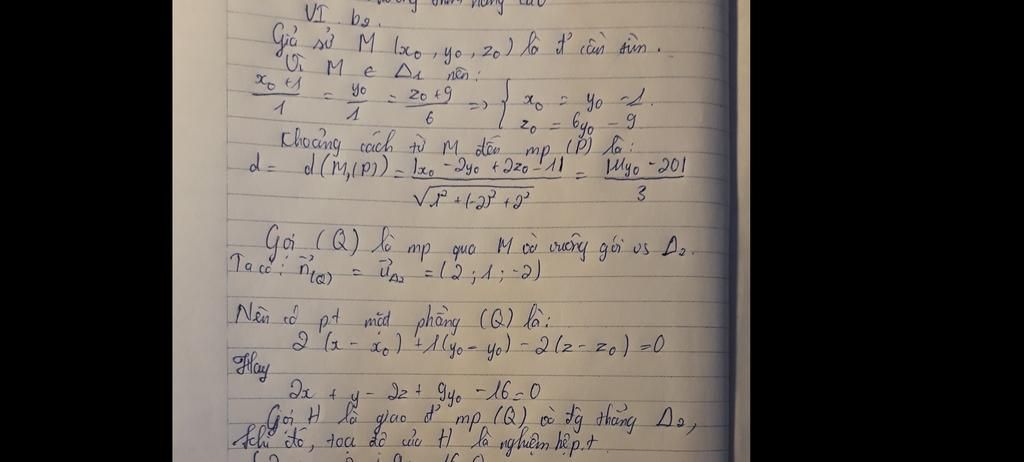 VI. b2.
Giả sử M (x₀, y₀, z₀) là đ' cần tìm.
Vì M ∈ Δ1 nên:
(x₀ + 1)/1 = y₀/1 = (z₀ + 9)/6 => { x₀ = y₀ - 1. z₀ = 6y₀ - 9
Khoảng cách từ M đến mp (P) là:
d = d(M,(P)) = |x₀ - 2y₀ + 2z₀ - 1|/√(1² + (-2)² + 2²) = |11y₀ - 20|/3
Gọi (Q) là mp qua M và vuông gói vs Δ2.
Ta có: n⃗(Q) = u⃗Δ2 = (2; 1; -2)
Nên có pt mặt phẳng (Q) là:
2 (x - x₀) + 1(y₀ - y₀) - 2(z - z₀) = 0
Hay
2x + y - 2z + 9y₀ - 16 = 0
Gọi H là giao đ' mp (Q) và đg thẳng Δ2,
khi đó, tọa độ của H là nghiệm hệ p.t